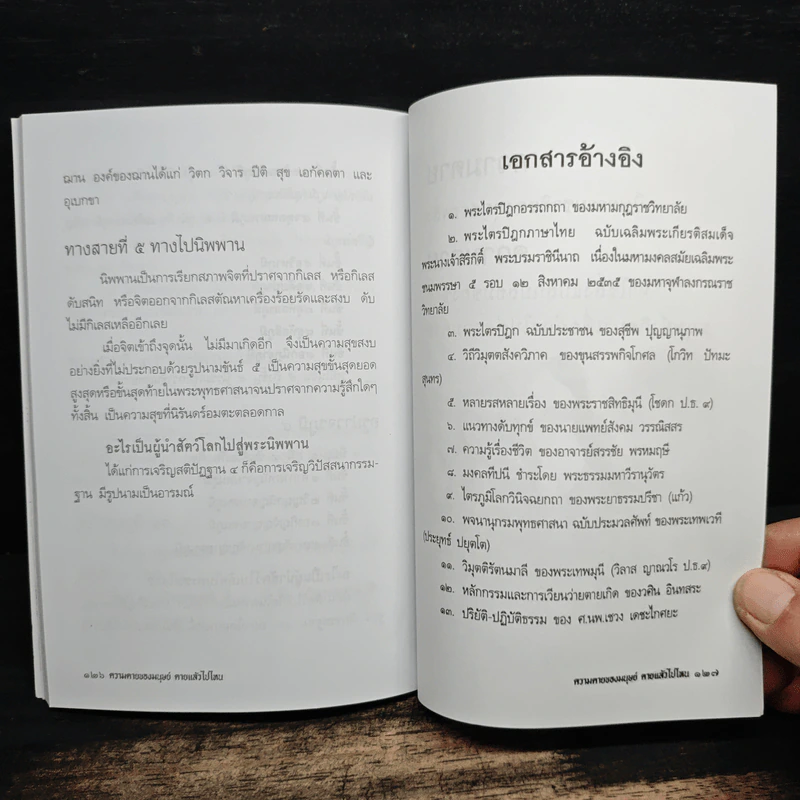 ฌาน องค์ของฌานได้แก่ วิตก วิจาร ปีติ สุข เอกัคคตา และ
อุเบกขา
ทางสายที่ ๕ ทางไปนิพพาน
นิพพานเป็นการเรียกสภาพจิตที่ปราศจากกิเลส หรือกิเลส
ดับสนิท หรือจิตออกจากกิเลสตัณหาเครื่องร้อยรัดและสงบ ดับ
ไม่มีกิเลสเหลืออีกเลย
เมื่อจิตเข้าถึงจุดนั้น ไม่มีมาเกิดอีก จึงเป็นความสุขสงบ
อย่างยิ่งที่ไม่ประกอบด้วยรูปนามขันธ์ ๕ เป็นความสุขขั้นสุดยอด
สูงสุดหรือขั้นสุดท้ายในพระพุทธศาสนาจนปราศจากความรู้สึกใดๆ
ทั้งสิ้น เป็นความสุขที่นิรันดร์อมตะตลอดกาล
อะไรเป็นผู้นำสัตว์โลกไปสู่พระนิพพาน
ได้แก่การเจริญสติปัฏฐาน ๔ ก็คือการเจริญวิปัสสนากรรม-
ฐาน มีรูปนามเป็นอารมณ์
๑๒๖ ความตายของมนุษย์ ตายแล้วไปไหน
เอกสารอ้างอิง
๑. พระไตรปิฎกอรรถกถา ของมหามกุฎราชวิทยาลัย
๒. พระไตรปิฎกภาษาไทย ฉบับเฉลิมพระเกียรติสมเด็จ
พระนางเจ้าสิริกิติ์ พระบรมราชินีนาถ เนื่องในมหามงคลสมัยเฉลิมพระ
ชนมพรรษา ๕ รอบ ๑๒ สิงหาคม ๒๕๓๕ ของมหาจุฬาลงกรณราช
วิทยาลัย
๓. พระไตรปิฎก ฉบับประชาชน ของสุชีพ ปุญญานุภาพ
๔. วิถีวิมุตตสังควิภาค ของขุนสรรพกิจโกศล (โกวิท ปัทมะ
สุนทร)
๕. หลายรสหลายเรื่อง ของพระราชสิทธิมุนี (โชดก ป.ธ. ๙)
๖. แนวทางดับทุกข์ ของนายแพทย์สังคม วรรณิสสร
๗. ความรู้เรื่องชีวิต ของอาจารย์สรรชัย พรหมฤษี
๘. มงคลทีปนี ชำระโดย พระธรรมมหาวีรานุวัตร
๙. ไตรภูมิโลกวินิจฉยกถา ของพระยาธรรมปรีชา (แก้ว)
๑๐. พจนานุกรมพุทธศาสนา ฉบับประมวลศัพท์ ของพระเทพเวที
(ประยุทธ์ ปยุตโต)
๑๑. วิมุตติรัตนมาลี ของพระเทพมุนี (วิลาส ญาณวโร ป.ธ.๙)
๑๒. หลักกรรมและการเวียนว่ายตายเกิด ของวศิน อินทสระ
๑๓. ปริยัติ-ปฏิบัติธรรม ของ ศ.นพ.เชวง เดชะไกศยะ
ความตายของมนุษย์ ตายแล้วไปไหน ๑๒๗